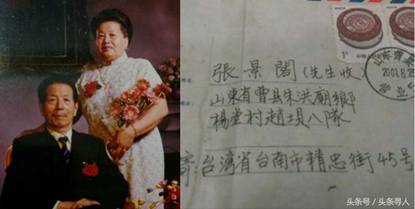 張景閣(先生收)
山東省曹县朱洪廟鄉
楊堂村趙垻八隊
寄:台湾省台南市精忠街45号
2001.8.
头条号 / 头条寻人